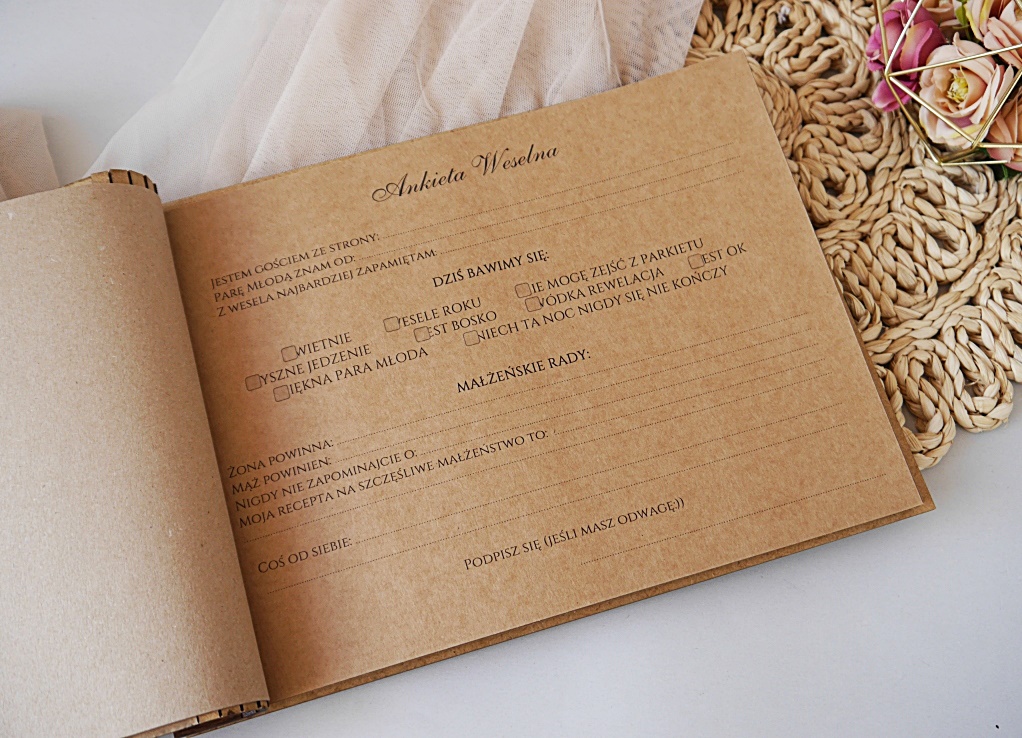 Ankieta Weselna
JESTEM GOŚCIEM ZE STRONY:
PARĘ MŁODĄ ZNAM OD:
Z WESELA NAJBARDZIEJ ZAPAMIĘTAM:
DZIŚ BAWIMY SIĘ:
WIETNIE ESELE ROKU IE MOGĘ ZEJŚĆ Z PARKIETU
YSZNE JEDZENIE EST BOSKO WÓDKA REWELACJA EST OK
IĘKNA PARA MŁODA NIECH TA NOC NIGDY SIĘ NIE KOŃCZY
MAŁŻEŃSKIE RADY:
ŻONA POWINNA:
MĄŻ POWINIEN:
NIGDY NIE ZAPOMINAJCIE O:
MOJA RECEPTA NA SZCZĘŚLIWE MAŁŻEŃSTWO TO:
COŚ OD SIEBIE:
PODPISZ SIĘ (JEŚLI MASZ ODWAGĘ:))